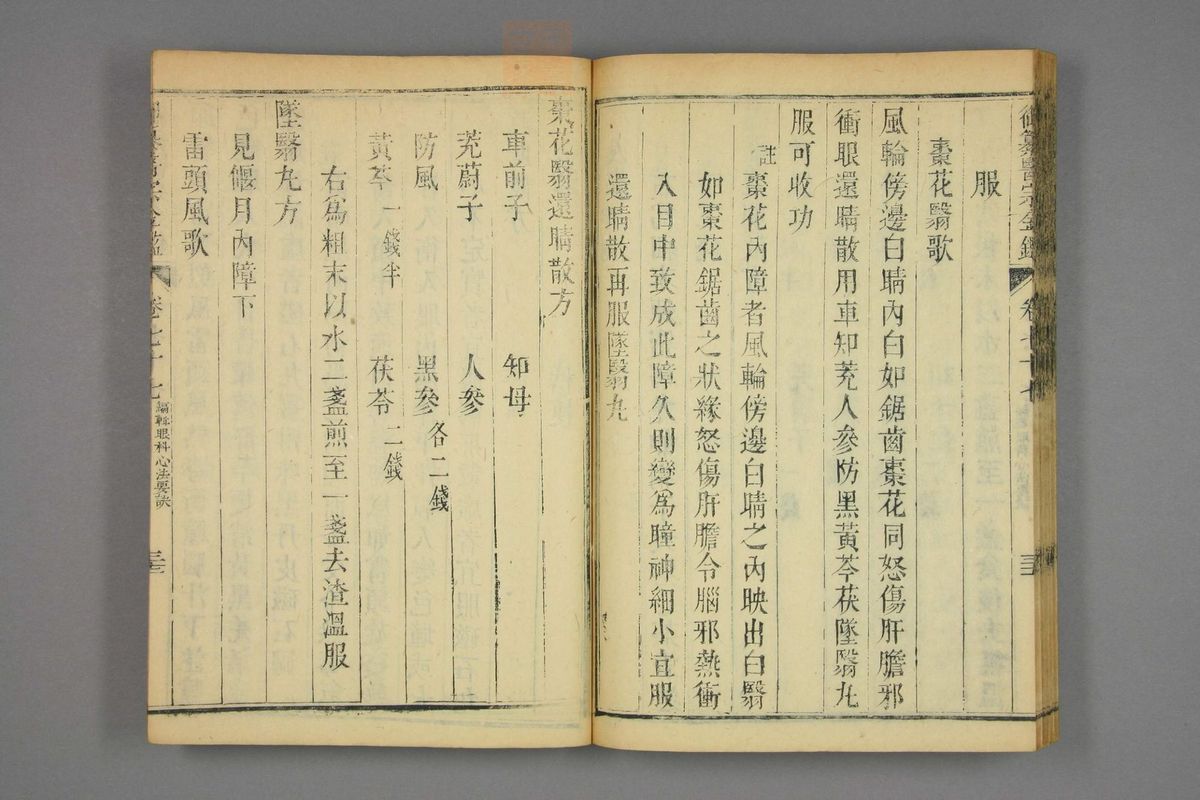 御纂醫宗金鑑 卷七十七
服
棗花翳歌
風輪傍邊白睛內白如鋸齒棗花同怒傷肝膽邪
衝眼還睛散用車知茺人參防黑黃芩茯墜翳丸
服可收功
註棗花內障者風輪傍邊白睛之內映出白翳
如棗花鋸齒之狀緣怒傷肝膽令腦邪熱衝
入目中致成此障久則變爲瞳神細小宜服
還睛散再服墜翳丸
棗花翳還睛散方
車前子 知母
茺蔚子 人參
防風 黑參各二錢
黃芩一錢半 茯苓二錢
右爲粗末以水二盞煎至一盞去渣溫服
墜翳丸方
見偃月內障下
雷頭風歌
卷七十七 編輯眼科心法要訣